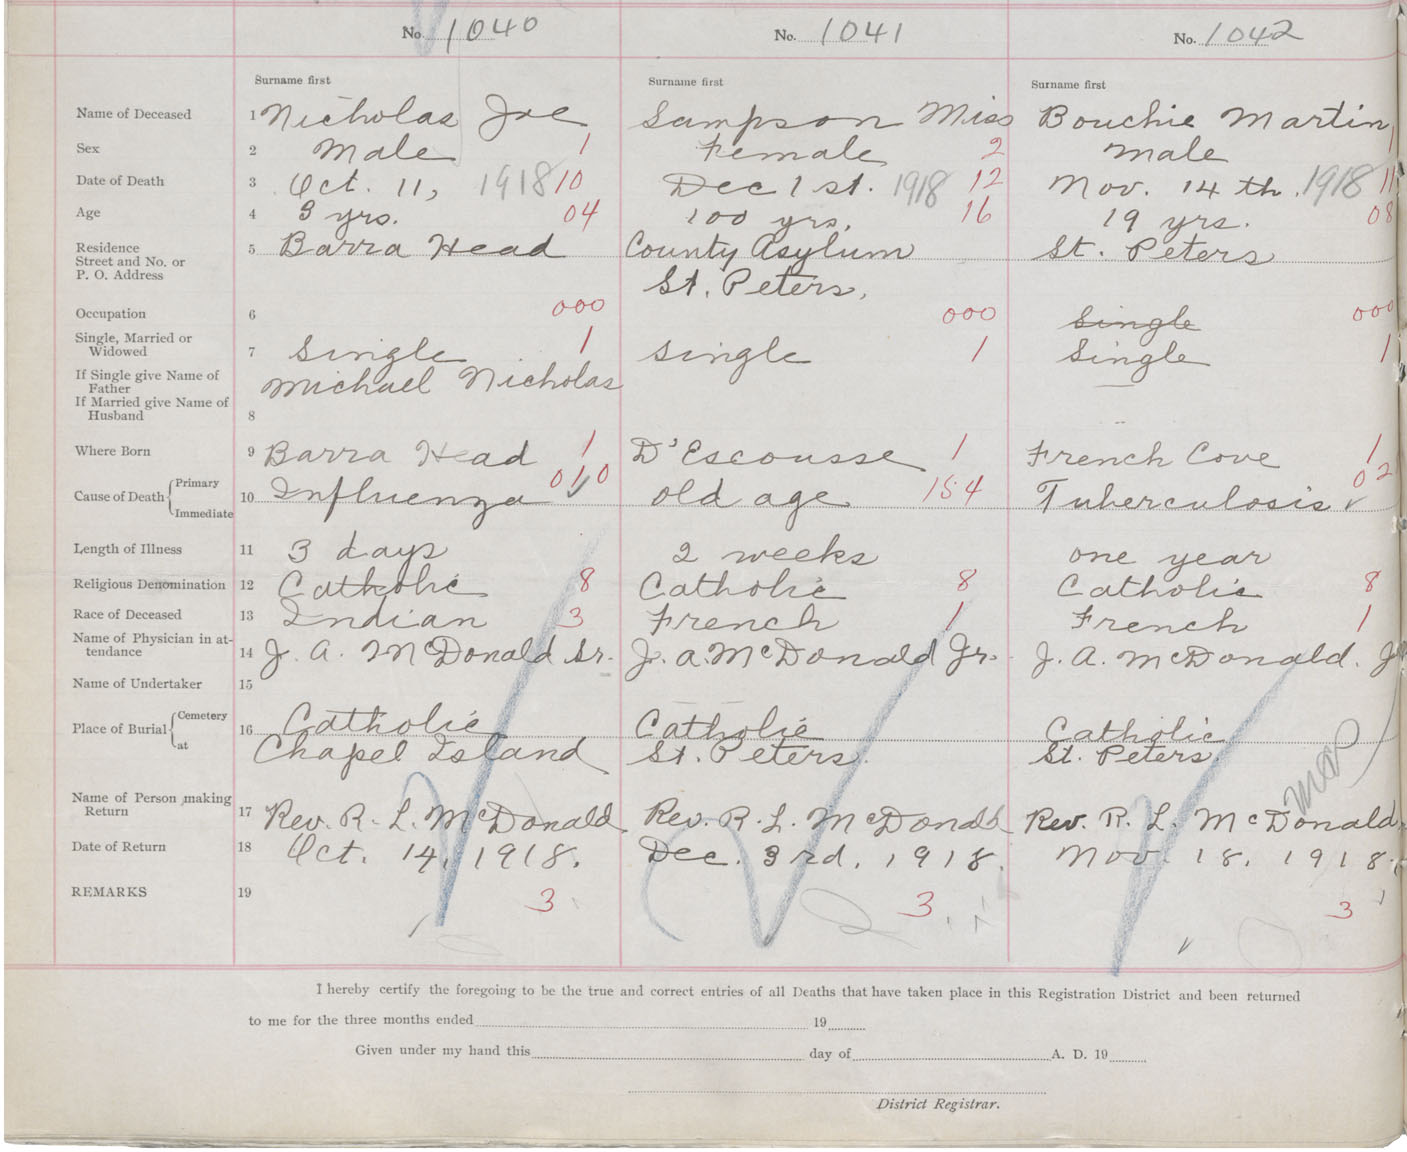 No. 1040 No. 1041 No. 1042
Surname first Surname first Surname first
Name of Deceased 1 Nicholas Joe Sampson Miss Bouchie Martin
Sex 2 Male 1 Female 2 male 1
Date of Death 3 Oct. 11, 1918 10 Dec 1st. 1918 12 Nov. 14th. 1918 11
Age 4 3 yrs. 04 100 yrs. 16 19 yrs. 08
Residence
Street and No. or
P. O. Address
5 Barra Head County Asylum St. Peters
St. Peters,
Occupation 6 000 000 Single 000
Single, Married or
Widowed
7 Single 1 Single 1 Single 1
If Single give Name of
Father
Michael Nicholas
If Married give Name of
Husband
8
Where Born 9 Barra Head 1 D'Escousse 1 French Cove 1
Cause of Death { Primary
Immediate
10 Influenza 010 old age 154 Tuberculosis 02
Length of Illness 11 3 days 2 weeks one year
Religious Denomination 12 Catholic 8 Catholic 8 Catholic 8
Race of Deceased 13 Indian 3 French 1 French 1
Name of Physician in at-
tendance
14 J. A. McDonald Sr. J. A. McDonald Jr. J. A. McDonald. J
Name of Undertaker 15
Place of Burial { Cemetery
at
16 Catholic Catholic Catholic
Chapel Island St. Peters. St. Peters.
Name of Person making
Return
17 Rev. R. L. McDonald Rev. R. L. McDonald Rev. R. L. McDonald
Date of Return 18 Oct. 14, 1918. Dec. 3rd, 1918. Nov. 18, 1918.
REMARKS 19 3 3 3
I hereby certify the foregoing to be the true and correct entries of all Deaths that have taken place in this Registration District and been returned
to me for the three months ended 19
Given under my hand this day of A. D. 19
District Registrar.